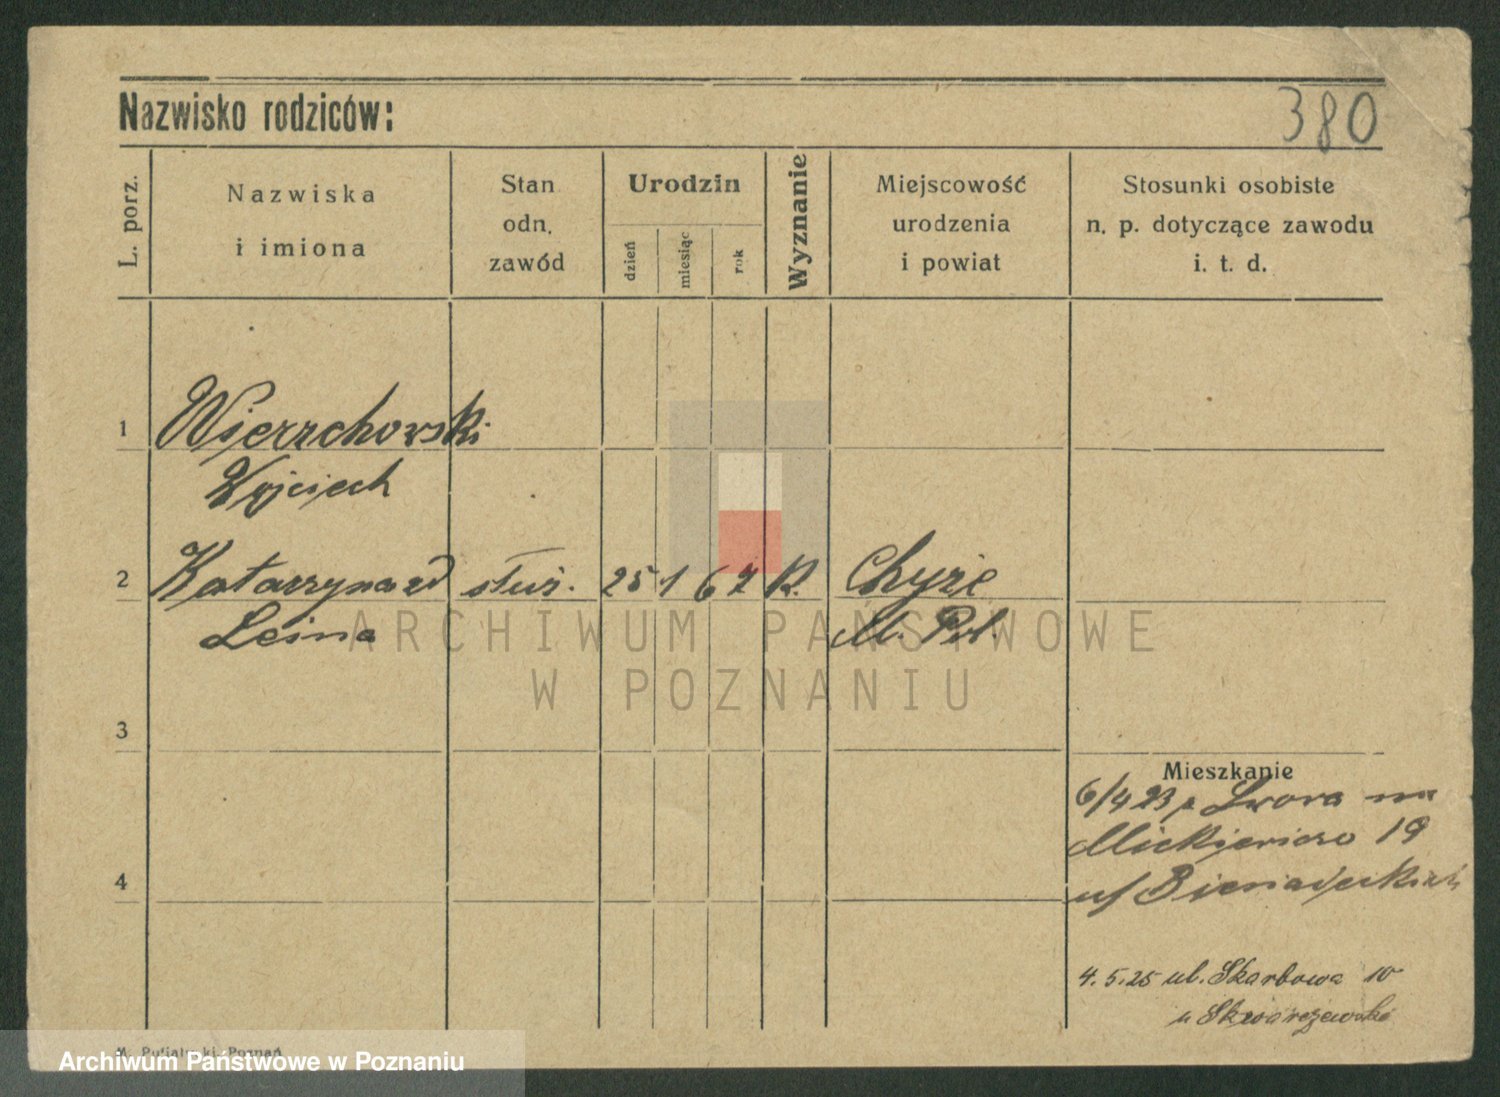 Nazwisko rodziców:
380
L. porz.
Nazwiska
i imiona
Stan
odn.
zawód
Urodzin
dzień
miesiąc
rok
Wyznanie
Miejscowość
urodzenia
i powiat
Stosunki osobiste
n. p. dotyczące zawodu
i. t. d.
1
Wierzchowski
Wojciech
2
Katarzyna zd
Leina
służ.
25 1 67
K.
Chyże
M. Pol.
ARCHIWUM PAŃSTWOWE
W POZNANIU
3
Mieszkanie
6/4 23 z Lwowa na
Mickiewicza 19
4
4. 5. 25 ul. Skarbowa 10
u
Poznań
Archiwum Państwowe w Poznaniu